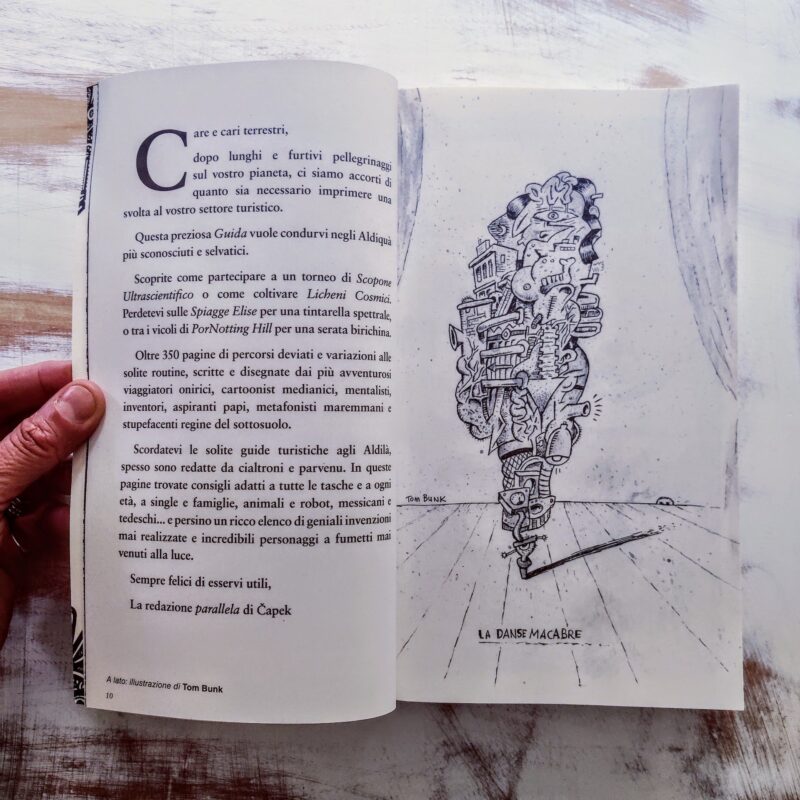 Care e cari terrestri,
dopo lunghi e furtivi pellegrinaggi
sul vostro pianeta, ci siamo accorti di
quanto sia necessario imprimere una
svolta al vostro settore turistico.
Questa preziosa Guida vuole condurvi negli Aldiquà
più sconosciuti e selvatici.
Scoprite come partecipare a un torneo di Scopone
Ultrascientifico o come coltivare Licheni Cosmici.
Perdetevi sulle Spiagge Elise per una tintarella spettrale,
o tra i vicoli di PorNotting Hill per una serata birichina.
Oltre 350 pagine di percorsi deviati e variazioni alle
solite routine, scritte e disegnate dai più avventurosi
viaggiatori onirici, cartoonist medianici, mentalisti,
inventori, aspiranti papi, metafonisti maremmani e
stupefacenti regine del sottosuolo.
Scordatevi le solite guide turistiche agli Aldilà,
spesso sono redatte da cialtroni e parvenu. In queste
pagine trovate consigli adatti a tutte le tasche e a ogni
età, a single e famiglie, animali e robot, messicani e
tedeschi... e persino un ricco elenco di geniali invenzioni
mai realizzate e incredibili personaggi a fumetti mai
venuti alla luce.
Sempre felici di esservi utili,
La redazione parallela di Čapek
A lato: illustrazione di Tom Bunk
10
TOM BUNK
LA DANSE MACABRE